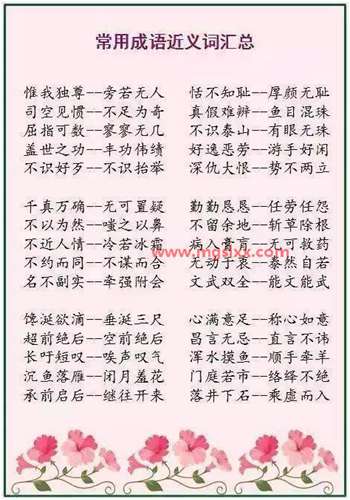 常用成语近义词汇总
惟我独尊--旁若无人 恬不知耻--厚颜无耻
司空见惯--不足为奇 真假难辨--鱼目混珠
屈指可数--寥寥无几 不识泰山--有眼无珠
盖世之功--丰功伟绩 好逸恶劳--游手好闲
不识好歹--不识抬举 深仇大恨--势不两立
千真万确--无可置疑 勤勤恳恳--任劳任怨
不以为然--嗤之以鼻 不留余地--斩草除根
不近人情--冷若冰霜 病入膏肓--无可救药
www.mgsixx.com
不约而同--不谋而合 无动于衷--泰然自若
名不副实--牵强附会 文武双全--能文能武
馋涎欲滴--垂涎三尺 心满意足--称心如意
超前绝后--空前绝后 昌言无忌--直言不讳
长吁短叹--唉声叹气 浑水摸鱼--顺手牵羊
沉鱼落雁--闭月羞花 门庭若市--络绎不绝
承前启后--继往开来 落井下石--乘虚而入